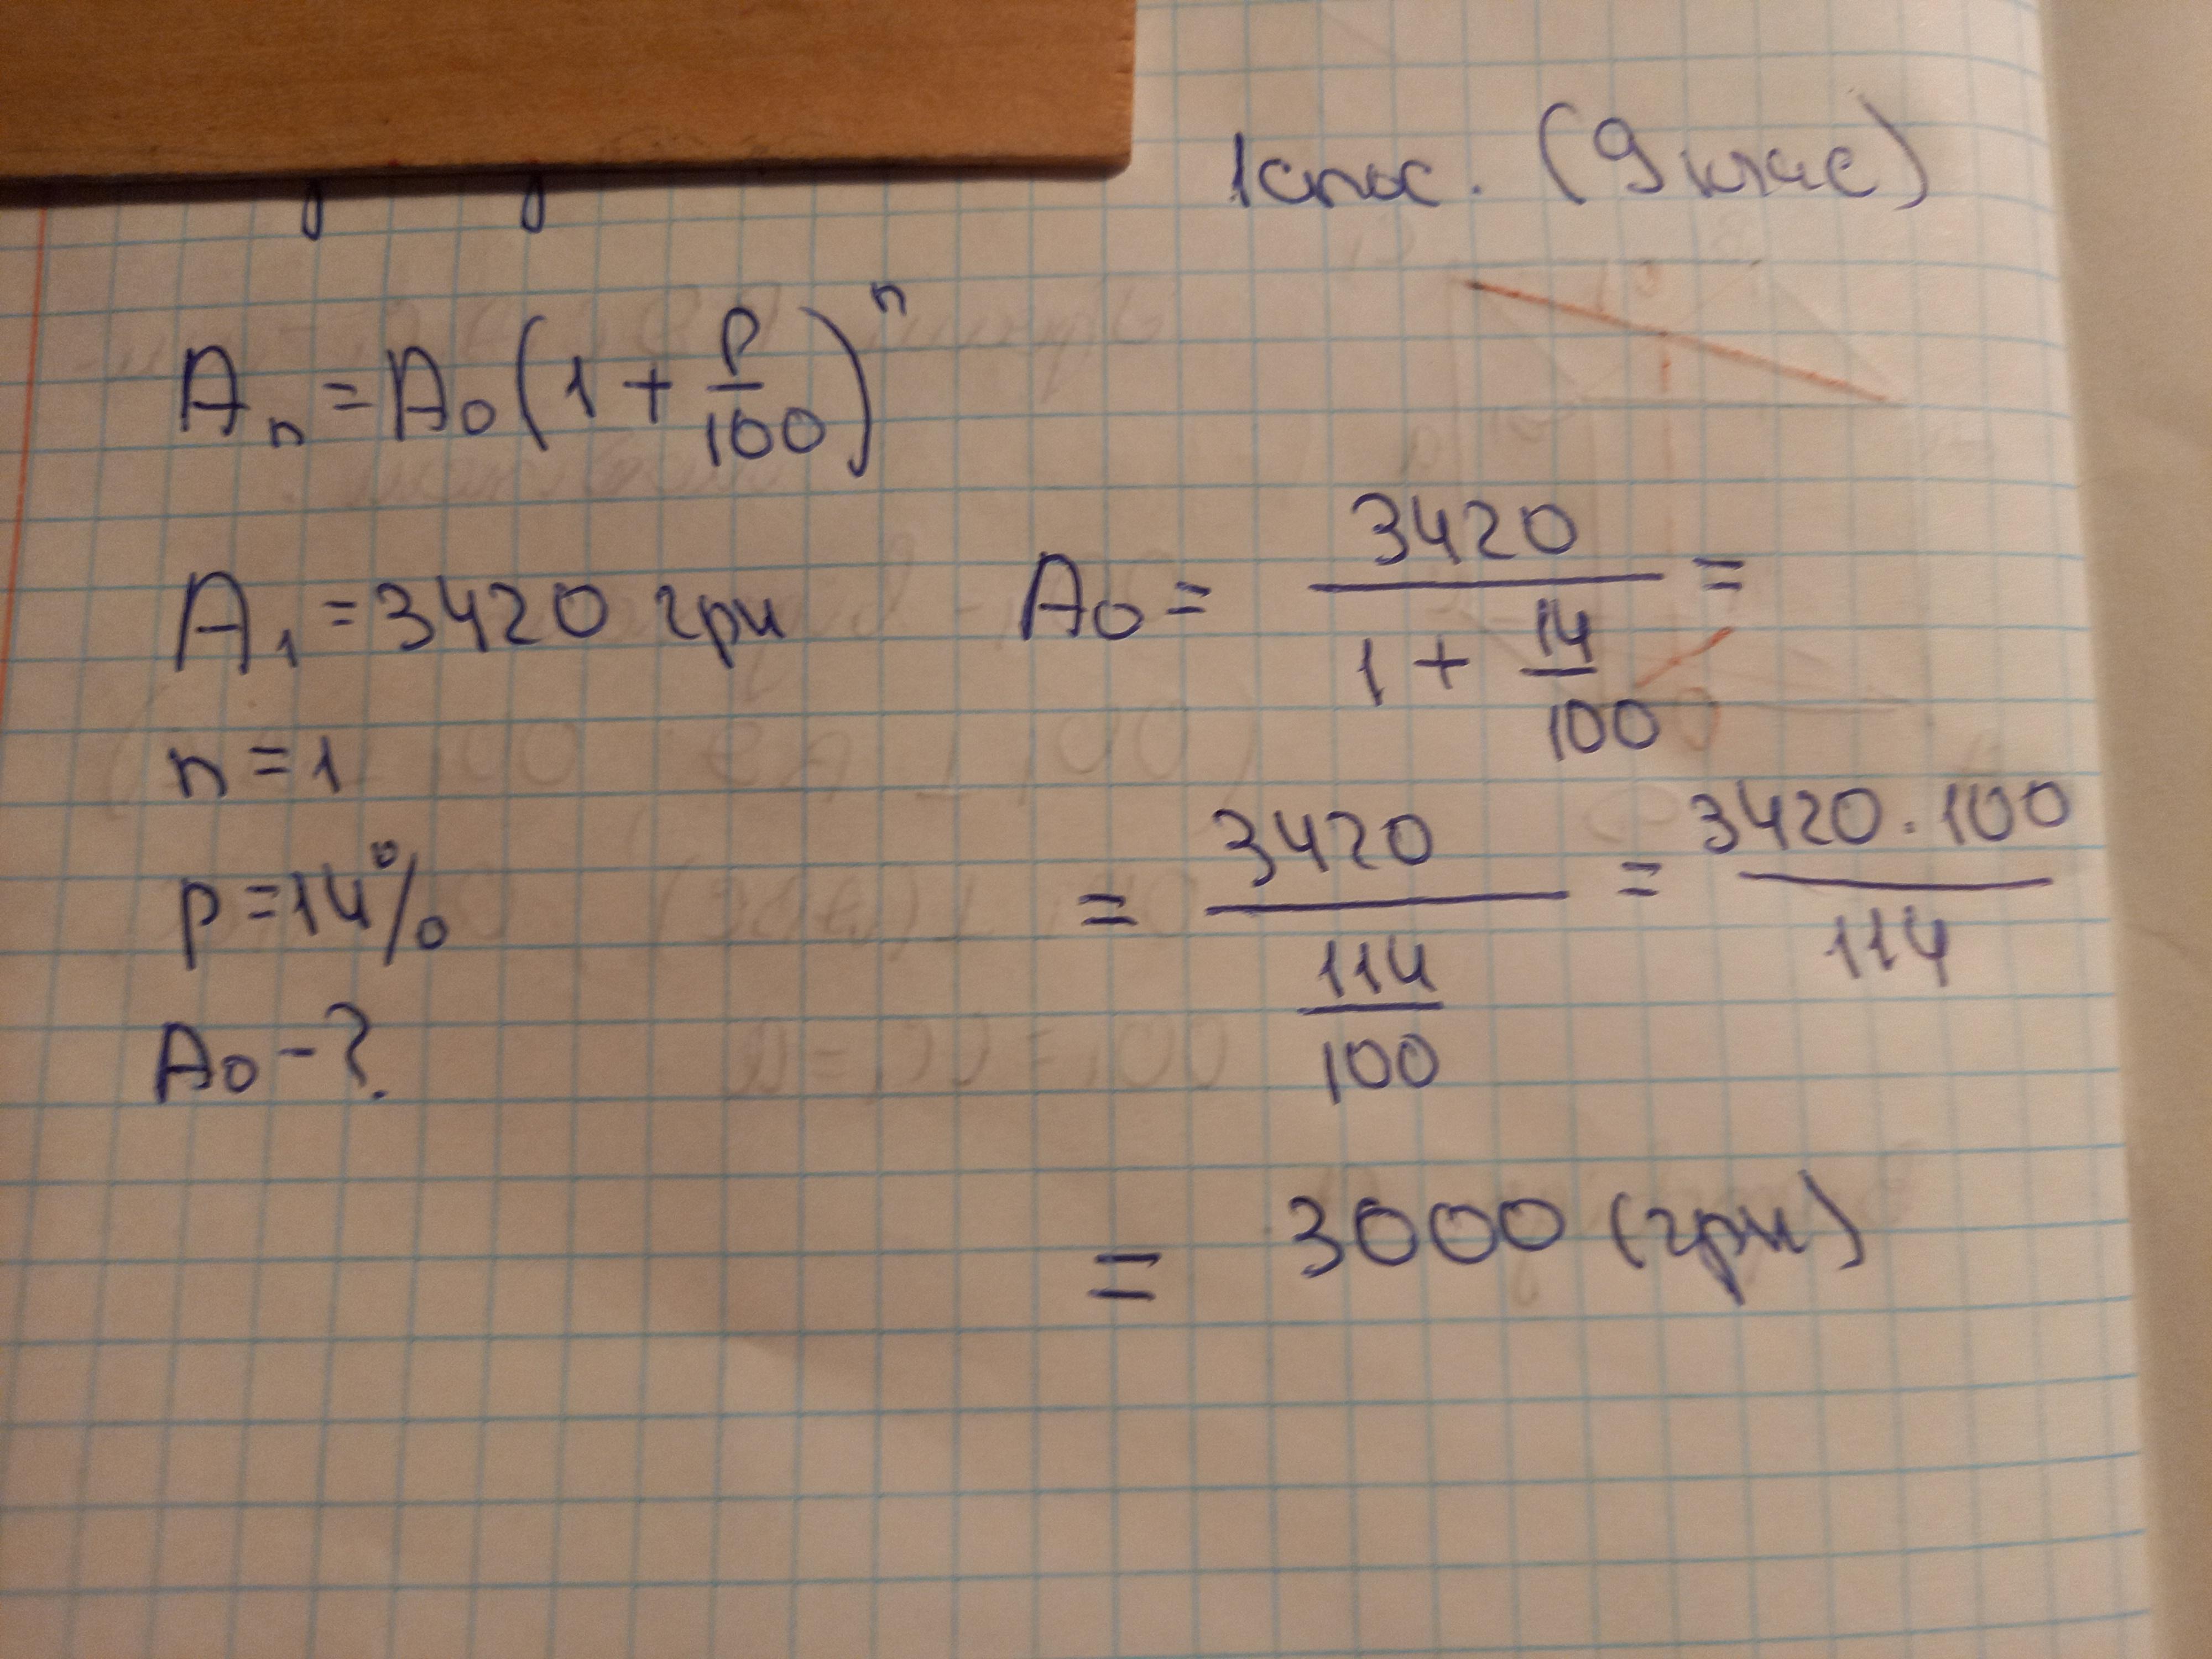 1 спос. (9 клас)
Aₙ = A₀ (1 + p/100)ⁿ
A₁ = 3420 грн
n = 1
p = 14%
A₀ - ?
A₀ = 3420 / (1 + 14/100) =
= 3420 / (114/100) = 3420 · 100 / 114
= 3000 (грн)